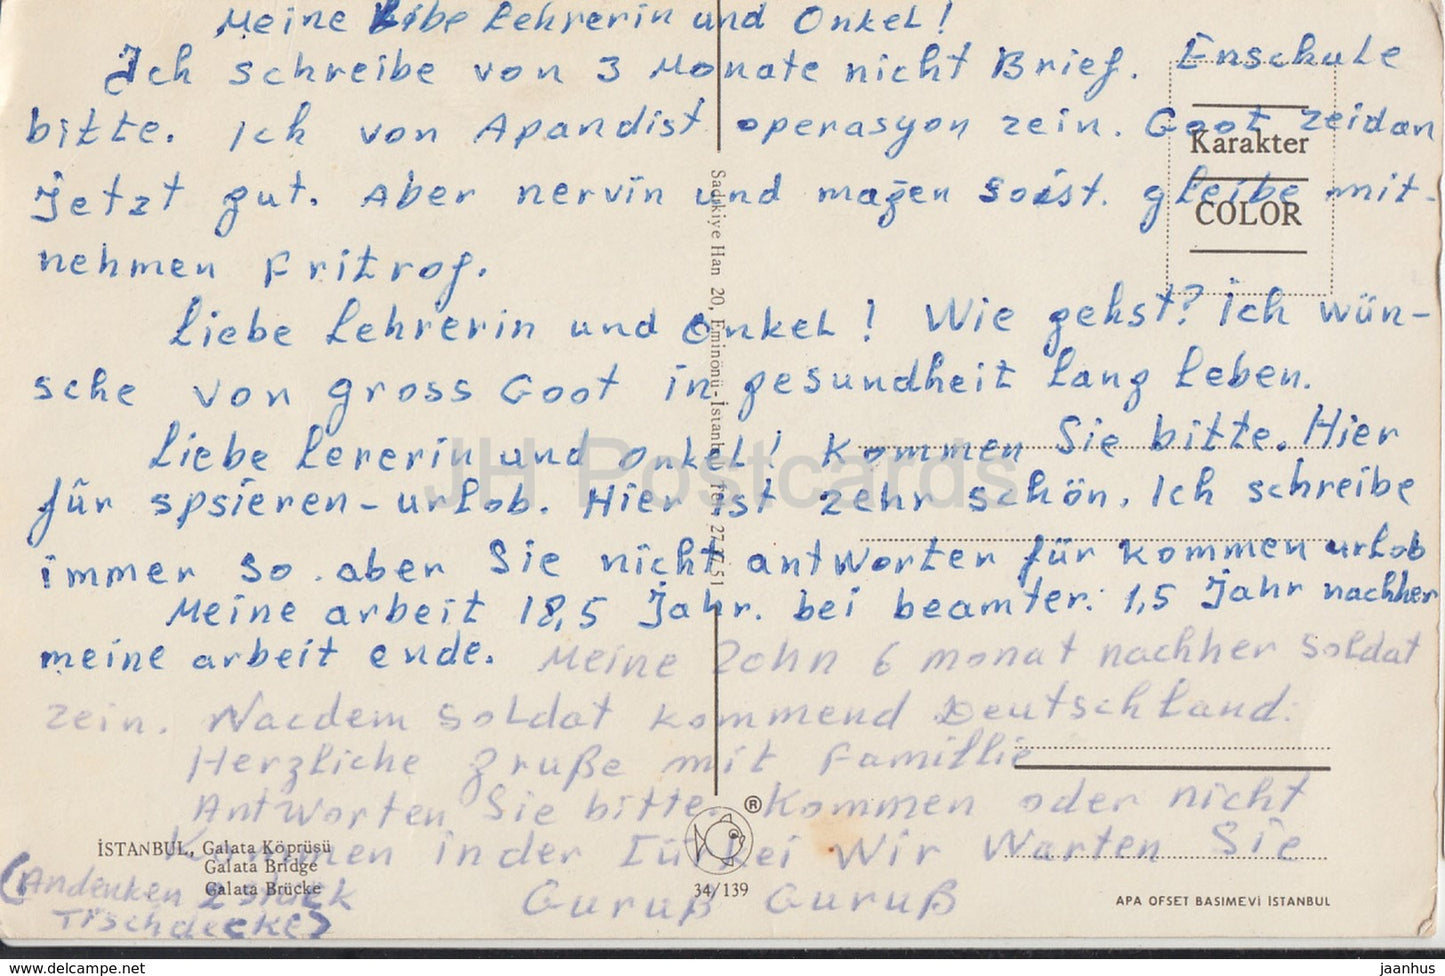 Meine Libe Lehrerin und Onkel!
Ich schreibe von 3 Monate nicht Brief. Enschule
bitte. Ich von Apandist operasyon zein. Goot zeidan
Jetzt gut. Aber nervin und magen soist. gleibe mit-
nehmen Fritrof.
Liebe Lehrerin und onkel! Wie gehst? ich wün-
sche von gross Goot in gesundheit lang leben.
Liebe Lererin und onkel! Kommen Sie bitte. Hier
für spsieren-urlob. Hier ist zehr schön. Ich schreibe
immer so. aber Sie nicht antworten für kommen urlob
Meine arbeit 18,5 Jahr. bei beamter. 1,5 Jahr nachher
meine arbeit ende. Meine Zohn 6 monat nachher soldat
zein. Nacdem soldat kommend Deutschland.
Herzliche gruße mit Famillie
Antworten Sie bitte. Kommen oder nicht
Kommen in der Türkei Wir Warten Sie
(Andenken 2 stück
Tischdecke)
Guruß Guruß
Karakter
COLOR
Sadıkiye Han 20, Eminönü-İstanbul tel. 27 51
İSTANBUL, Galata Köprüsü
Galata Bridge
Galata Brücke
®
34/139
APA OFSET BASIMEVİ İSTANBUL
JH Postcards
delcampe.net
jaanhus